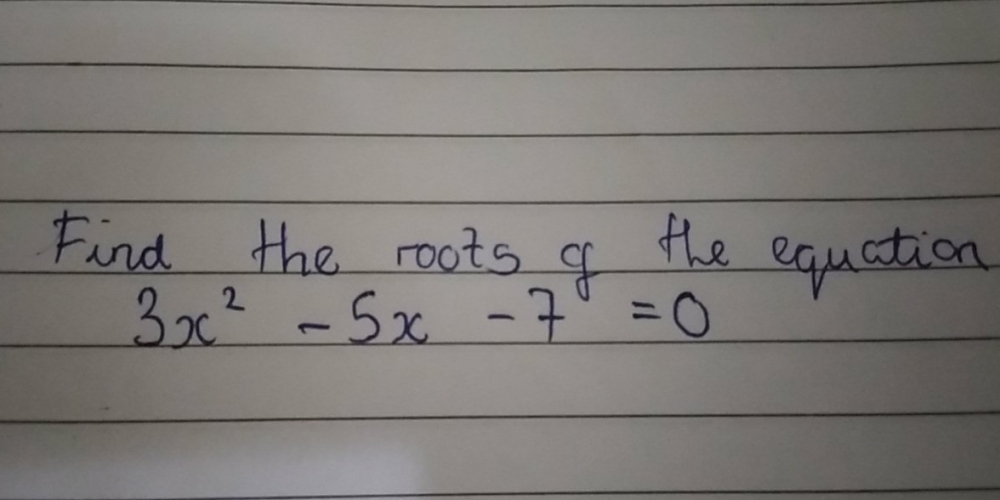 Find the roots of the equation
3x² - 5x - 7 = 0